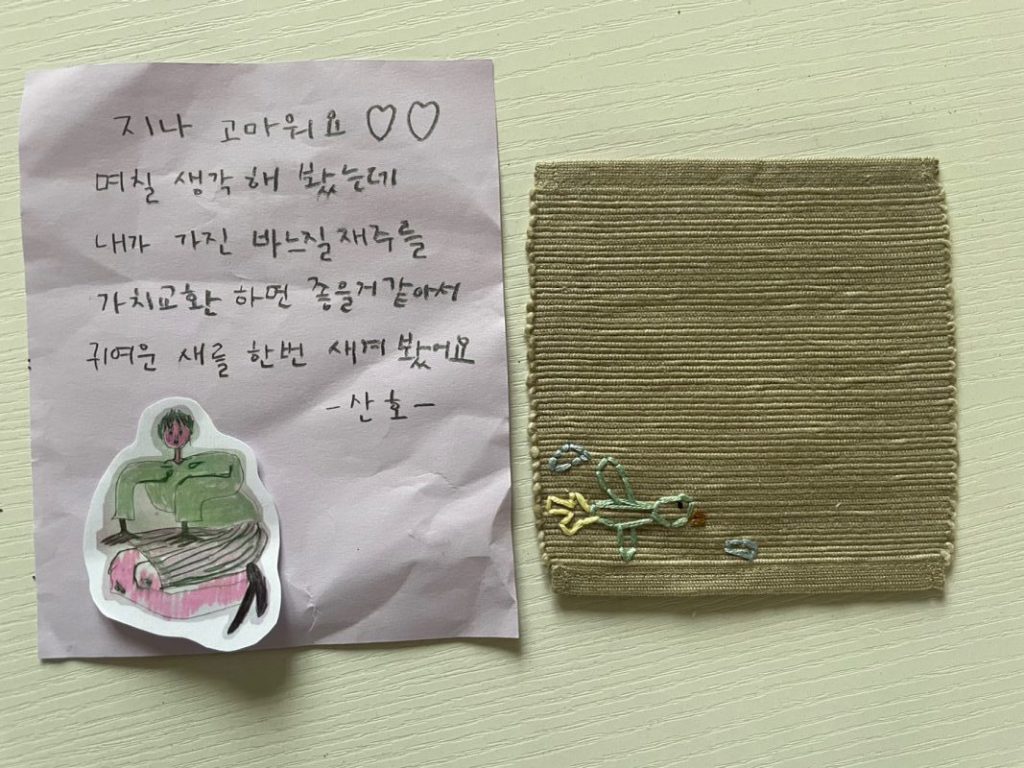 지나 고마워요 ♡♡
며칠 생각해 봤는데
내가 가진 바느질재주를
가치교환 하면 좋을거같아서
귀여운 새를 한번 새겨봤어요
-산호-